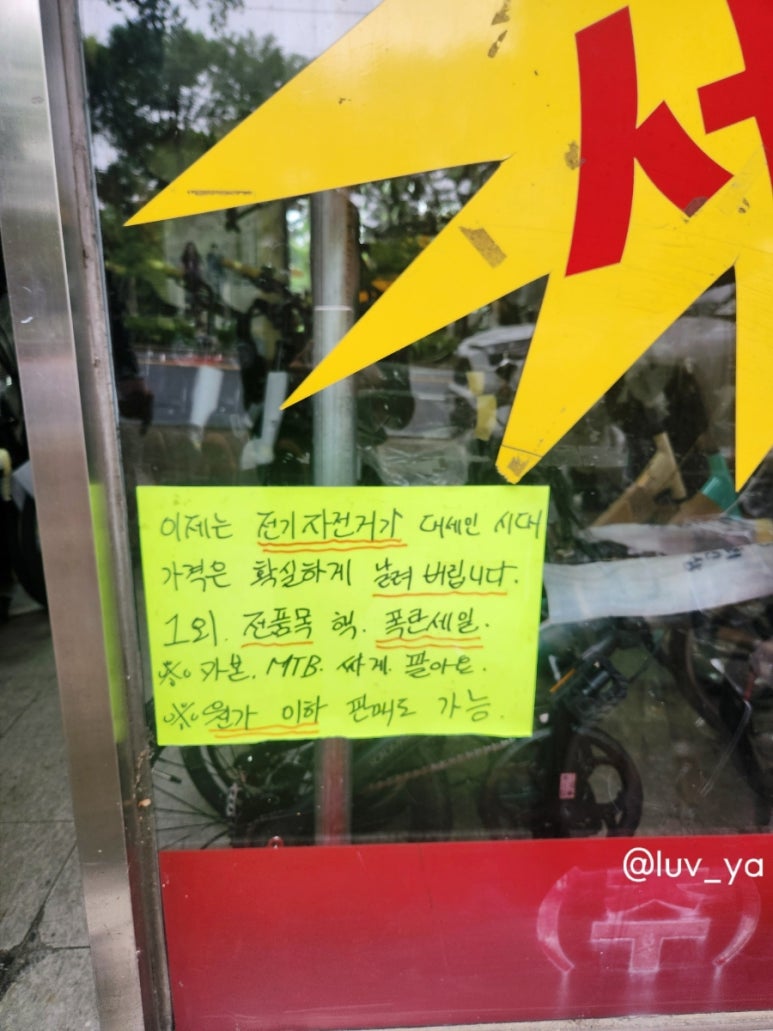 세
이제는 전기자전거가 대세인 시대
가격은 확실하게 날려 버립니다.
그외. 전품목 핵. 폭탄세일.
※ 카본. MTB. 싸게. 팔아요.
※ 원가 이하 판매도 가능.
@luv_ya
(주)